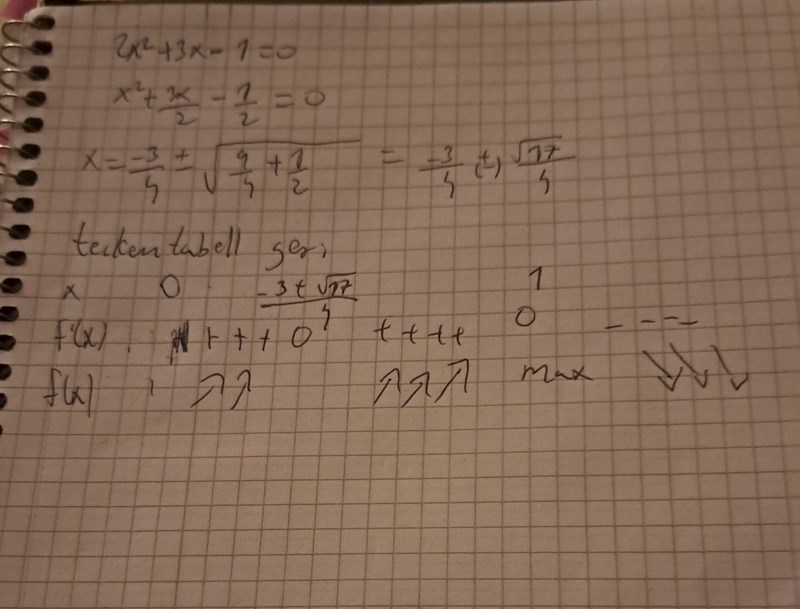 2x²+3x-1=0
x²+3x/2 - 1/2 = 0
x = -3/4 ± √(9/4 + 1/2) = -3/4 (±) √17/4
teckentabell ger:
x 0 (-3+√17)/4 1
f'(x) : + + + 0 + + + + 0 - - - -
f(x) : ↗↗ ↗↗↗ max ↘↘↘